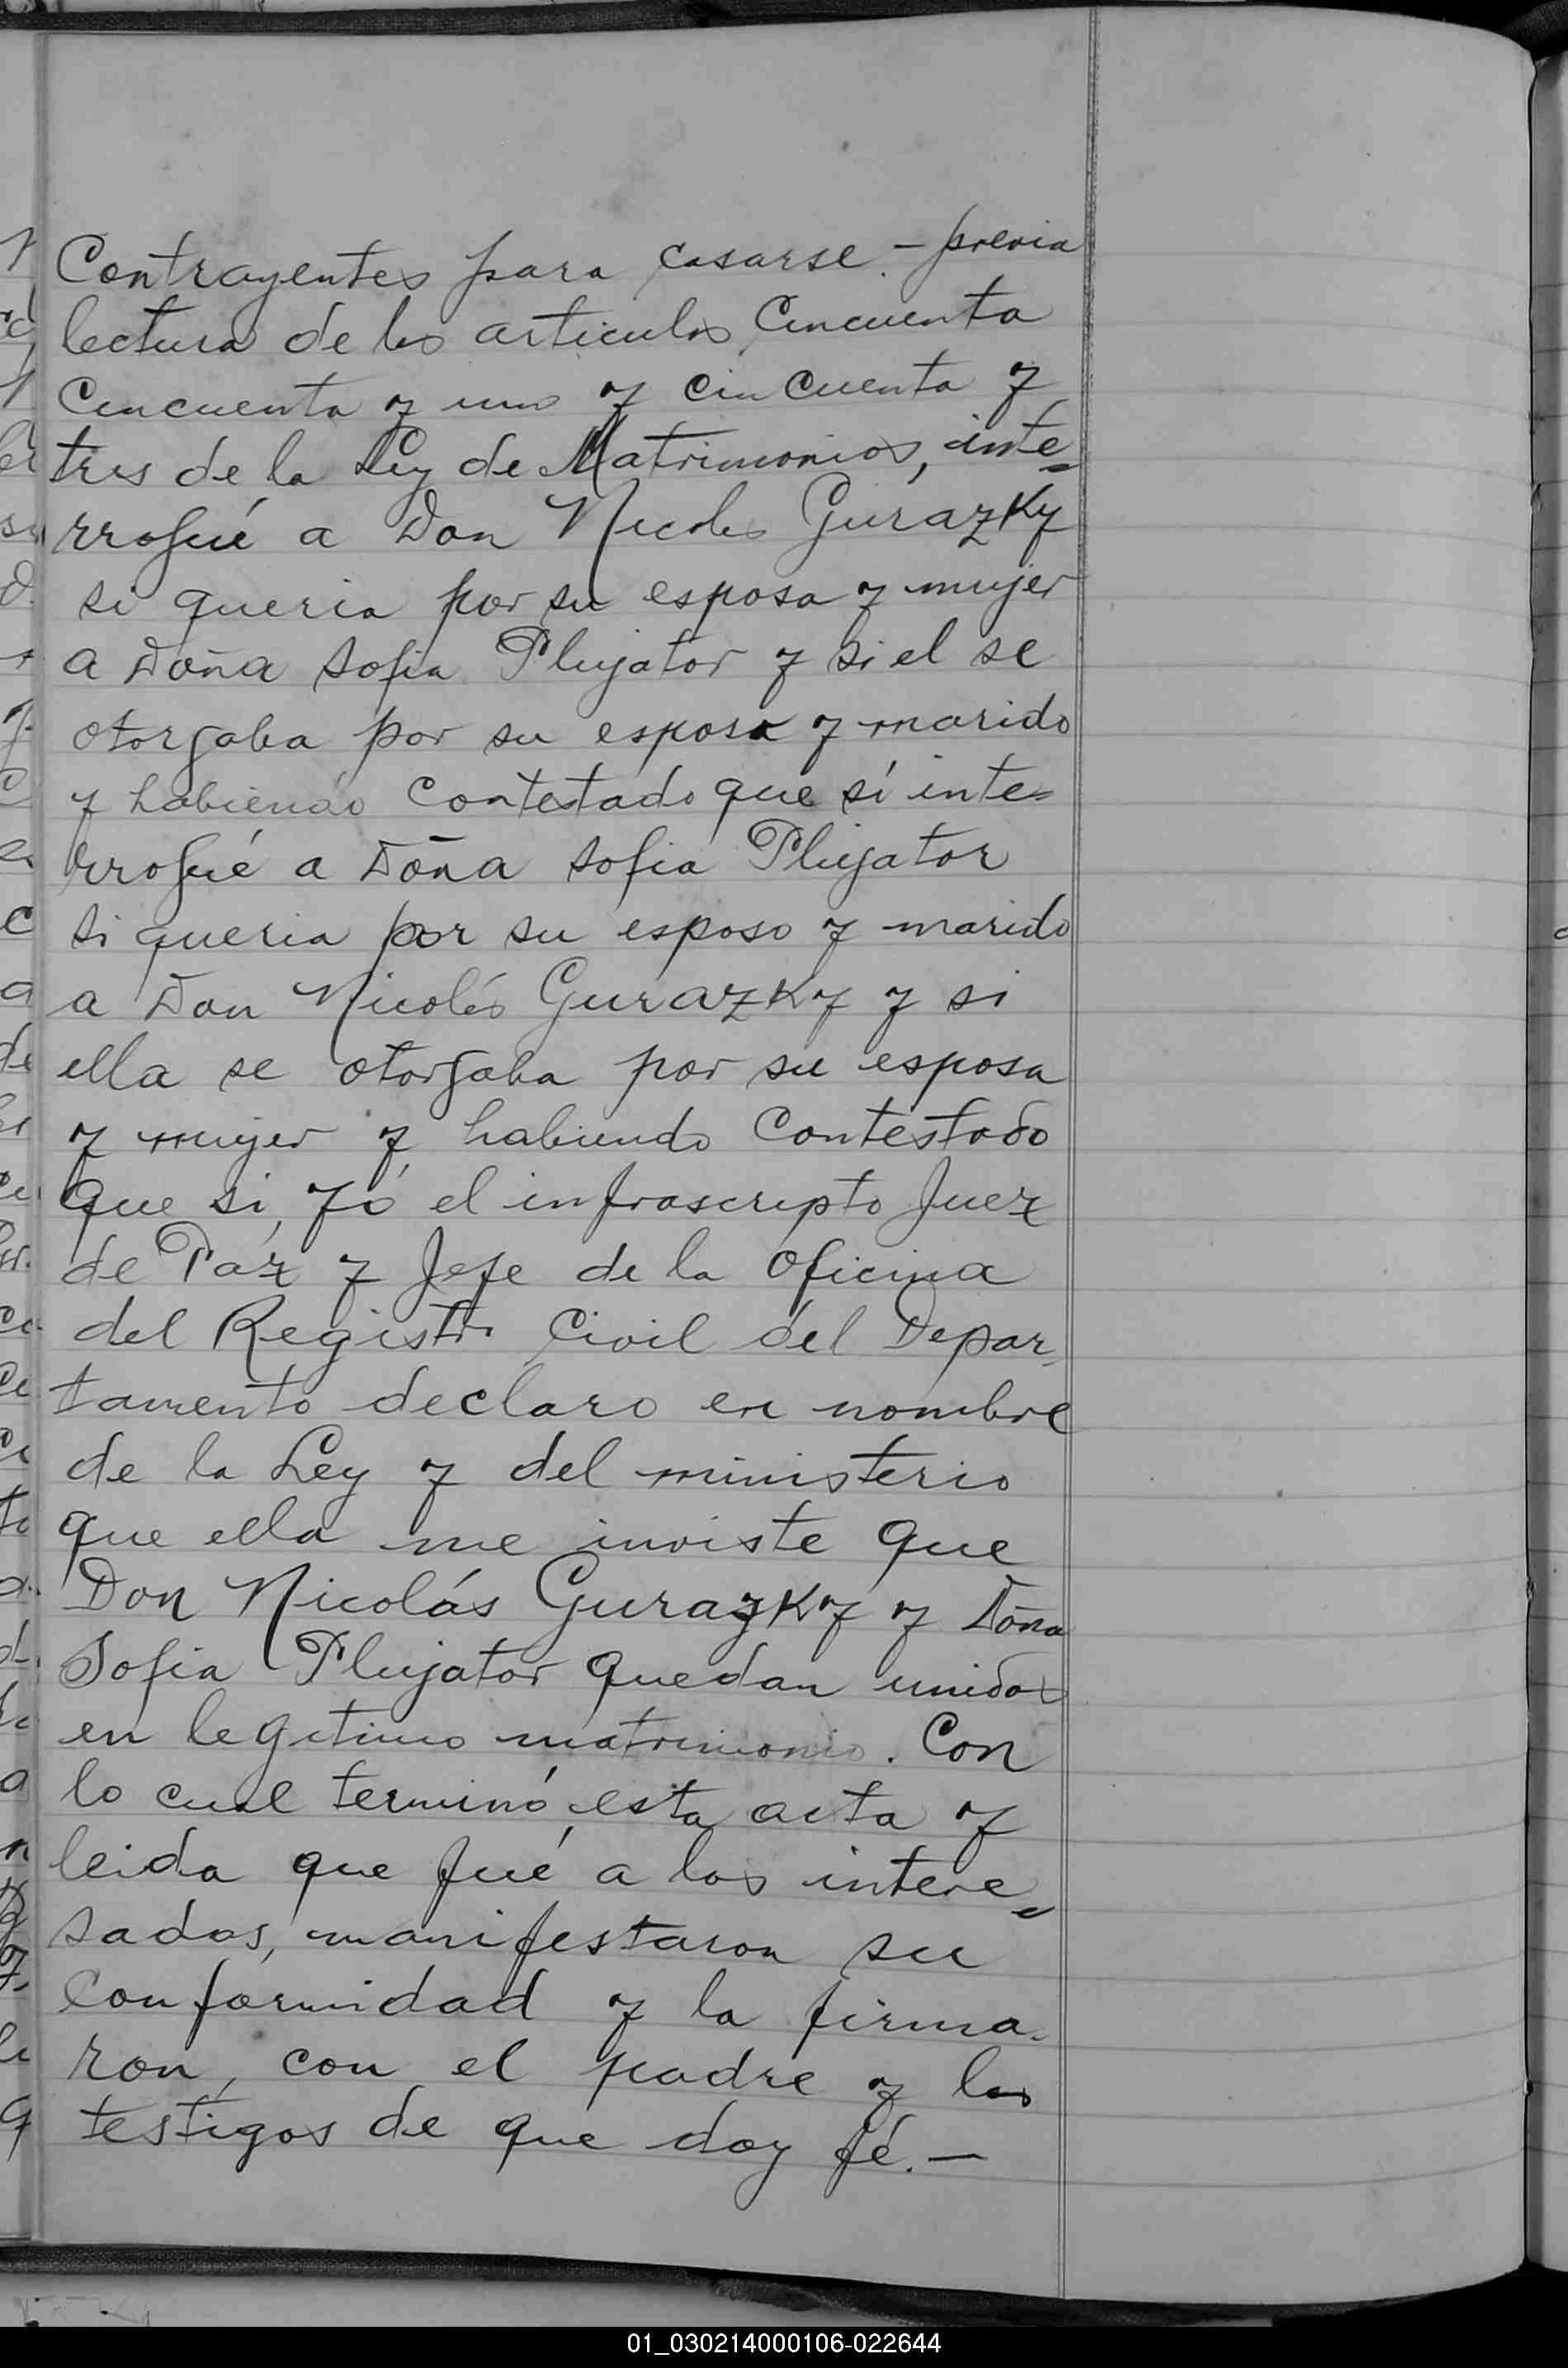 Contrayentes para casarse. - previa
lectura de los articulos Cincuenta
Cincuenta y uno y cincuenta y
tres de la Ley de Matrimonios, inte=
rrogué a Don Nicolás Gurazky
si queria por su esposa y mujer
a Doña Sofia Plujator y si el se
otorgaba por su esposo y marido
y habiendo contestado que sí inte=
rrogué a Doña Sofia Plujator
si queria por su esposo y marido
a Don Nicolás Gurazky y si
ella se otorgaba por su esposa
y mujer y habiendo contestado
que si, Yó el infrascripto Juez
de Páz y Jefe de la oficina
del Registro Civil del Depar-
tamento declaro en nombre
de la Ley y del ministerio
que ella me inviste que
Don Nicolás Gurazky y Doña
Sofia Plujator quedan unidos
en legitimo matrimonio. Con
lo cual terminó, esta acta y
leida que fué a los intere=
sados, manifestaron su
conformidad y la firma-
ron, con el padre y los
testigos de que doy fé. -
01_030214000106-022644